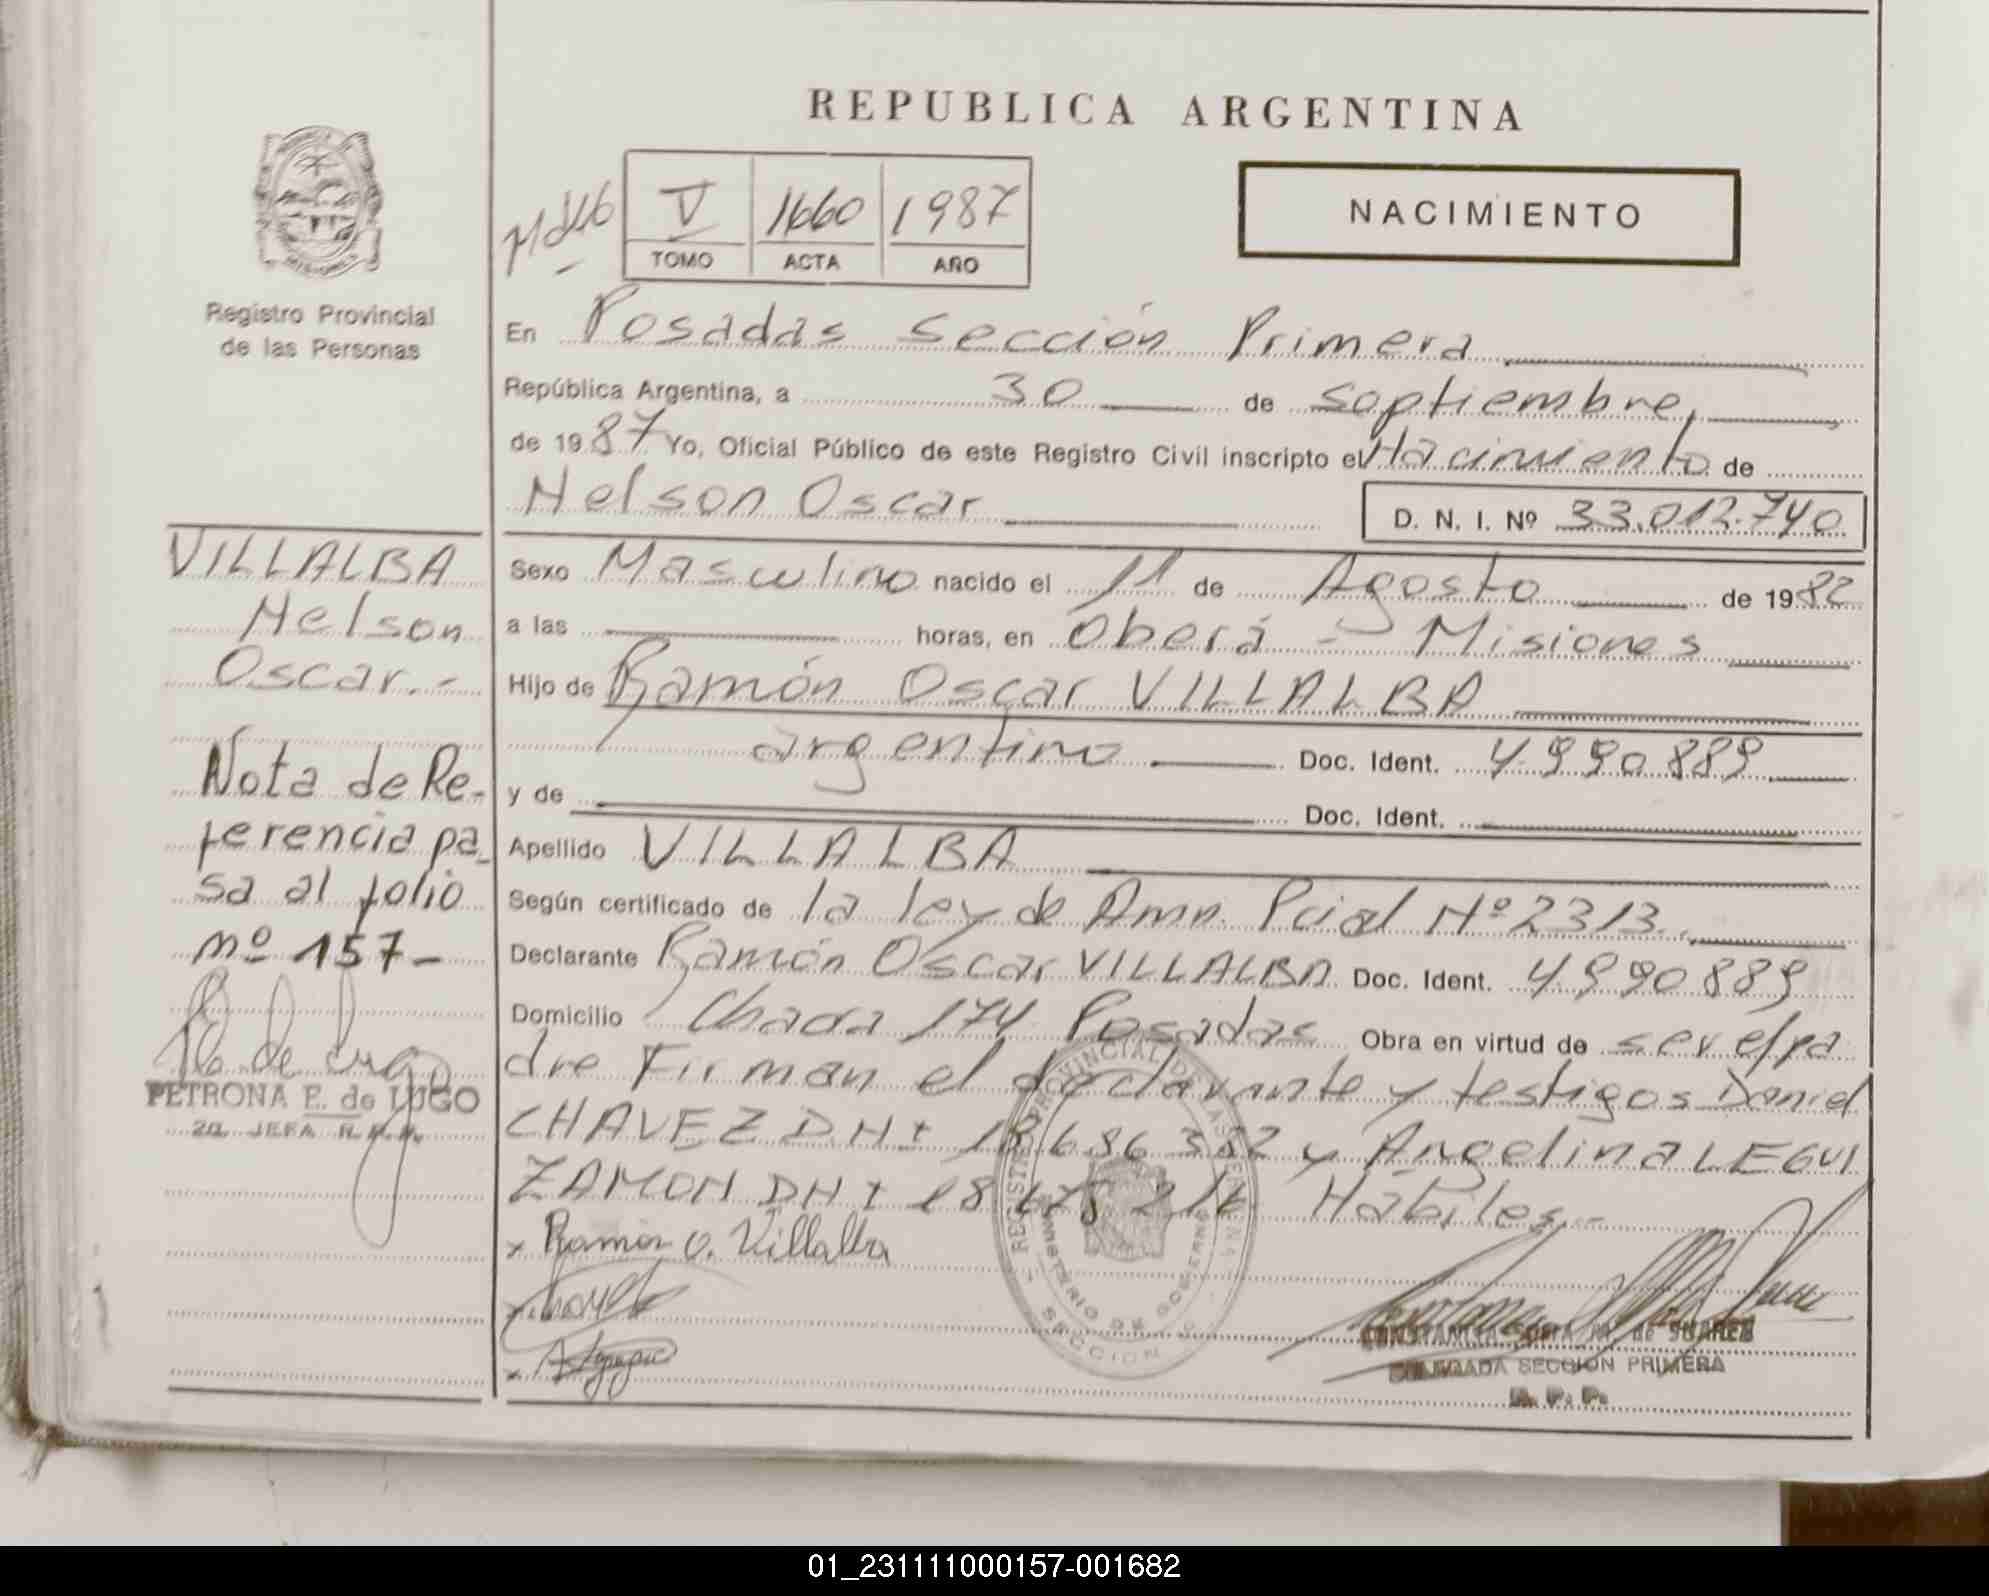 REPUBLICA ARGENTINA
V 1660 1987
TOMO ACTA AÑO
NACIMIENTO
MISIONES
Registro Provincial
de las Personas
En Posadas Sección Primera
República Argentina, a 30 de Septiembre,
de 1987 Yo, Oficial Público de este Registro Civil inscripto el Nacimiento de
Nelson Oscar
D. N. I. Nº 33.012.740
Sexo Masculino nacido el 11 de Agosto de 1982
a las horas, en Oberá - Misiones
Hijo de Ramón Oscar VILLALBA
argentino Doc. Ident. 4.990.889
y de Doc. Ident.
Apellido VILLALBA
Según certificado de la ley de Amn. Pcial Nº 2313.
Declarante Ramón Oscar VILLALBA Doc. Ident. 4.990.889
Domicilio Chaca 174 Posadas Obra en virtud de ser el pa
dre Firman el declarante y testigos Daniel
CHAVEZ DNI 18.686.382 y Angelina LEGUI
ZAMON DNI 18 Habiles.-
x Ramón O. Villalba
VILLALBA
Nelson
Oscar.-
Nota de Re-
ferencia pa-
sa al folio
nº 157-
PETRONA E. de LUGO
2a. JEFA R.P.P.
REGISTRO PROVINCIAL DE LAS PERSONAS
MINISTERIO DE GOBIERNO
SECCION
CONSTANCIA SOFIA M. de SUAREZ
DELEGADA SECCION PRIMERA
R. P. P.
01_231111000157-001682